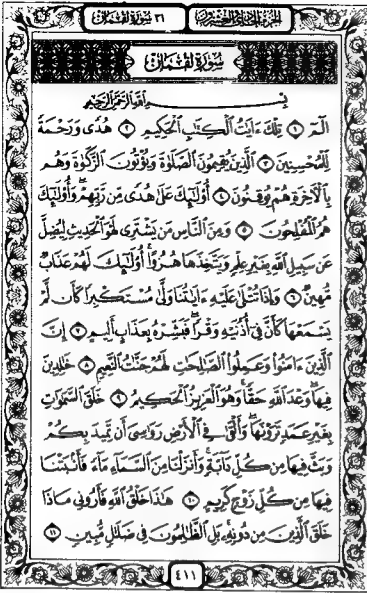 الجزء الحادي والعشرون
٣١ سورة لقمان
سُورَةُ لُقْمَانَ
بِسْمِ اللَّهِ الرَّحْمَٰنِ الرَّحِيمِ
الٓمٓ ١ تِلْكَ ءَايَٰتُ ٱلْكِتَٰبِ ٱلْحَكِيمِ ٢ هُدًى وَرَحْمَةً
لِّلْمُحْسِنِينَ ٣ ٱلَّذِينَ يُقِيمُونَ ٱلصَّلَوٰةَ وَيُؤْتُونَ ٱلزَّكَوٰةَ وَهُم
بِٱلْأَخِرَةِ هُمْ يُوقِنُونَ ٤ أُوْلَٰٓئِكَ عَلَىٰ هُدًى مِّن رَّبِّهِمْ ۖ وَأُوْلَٰٓئِكَ
هُمُ ٱلْمُفْلِحُونَ ٥ وَمِنَ ٱلنَّاسِ مَن يَشْتَرِى لَهْوَ ٱلْحَدِيثِ لِيُضِلَّ
عَن سَبِيلِ ٱللَّهِ بِغَيْرِ عِلْمٍ وَيَتَّخِذَهَا هُزُوًا ۚ أُوْلَٰٓئِكَ لَهُمْ عَذَابٌ
مُّهِينٌ ٦ وَإِذَا تُتْلَىٰ عَلَيْهِ ءَايَٰتُنَا وَلَّىٰ مُسْتَكْبِرًا كَأَن لَّمْ
يَسْمَعْهَا كَأَنَّ فِىٓ أُذُنَيْهِ وَقْرًا ۖ فَبَشِّرْهُ بِعَذَابٍ أَلِيمٍ ٧ إِنَّ
ٱلَّذِينَ ءَامَنُوا۟ وَعَمِلُوا۟ ٱلصَّٰلِحَٰتِ لَهُمْ جَنَّٰتُ ٱلنَّعِيمِ ٨ خَٰلِدِينَ
فِيهَا ۖ وَعْدَ ٱللَّهِ حَقًّا ۚ وَهُوَ ٱلْعَزِيزُ ٱلْحَكِيمُ ٩ خَلَقَ ٱلسَّمَٰوَٰتِ
بِغَيْرِ عَمَدٍ تَرَوْنَهَا ۖ وَأَلْقَىٰ فِى ٱلْأَرْضِ رَوَٰسِىَ أَن تَمِيدَ بِكُمْ
وَبَثَّ فِيهَا مِن كُلِّ دَآبَّةٍ ۚ وَأَنزَلْنَا مِنَ ٱلسَّمَآءِ مَآءً فَأَنۢبَتْنَا
فِيهَا مِن كُلِّ زَوْجٍ كَرِيمٍ ١٠ هَٰذَا خَلْقُ ٱللَّهِ فَأَرُونِى مَاذَا
خَلَقَ ٱلَّذِينَ مِن دُونِهِۦ ۚ بَلِ ٱلظَّٰلِمُونَ فِى ضَلَٰلٍ مُّبِينٍ ١١
٤١١